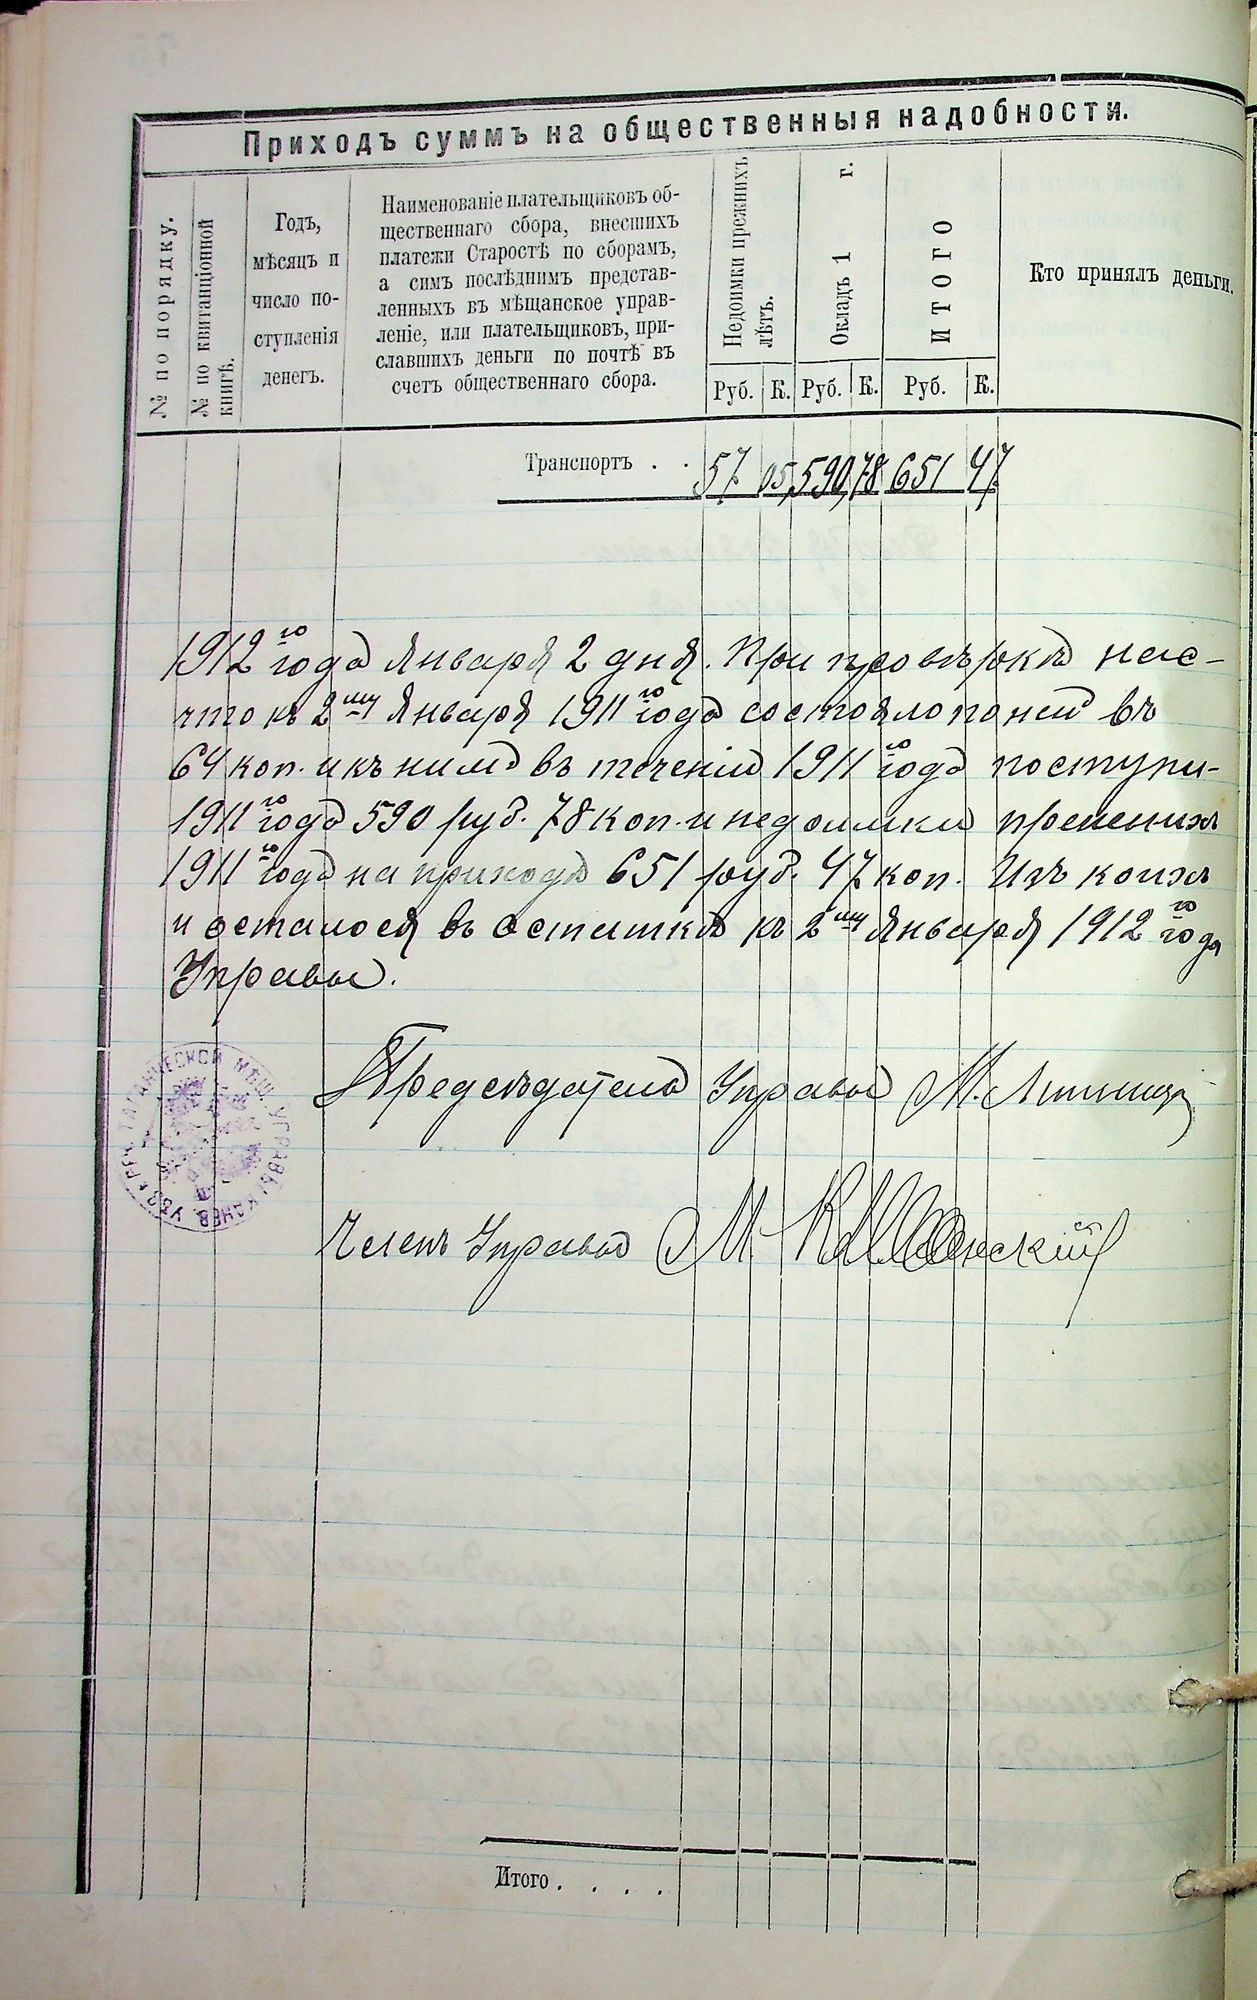 Приходъ суммъ на общественныя надобности.
№ по порядку.
№ по квитанціонной
книгѣ.
Годъ,
мѣсяцъ и
число по-
ступленія
денегъ.
Наименованіе плательщиковъ об-
щественнаго сбора, внесшихъ
платежи Старостѣ по сборамъ,
а симъ послѣднимъ представ-
ленныхъ въ мѣщанское управ-
леніе, или плательщиковъ, при-
славшихъ деньги по почтѣ въ
счетъ общественнаго сбора.
Недоимки прежнихъ
лѣтъ.
Окладъ 1 г.
ИТОГО
Руб. К. Руб. К. Руб. К.
Кто принялъ деньги.
Транспортъ . . 57 05 590 78 651 47
1912го года Января 2 дня. При провѣркѣ нас-
что къ 2му Января 1911го года состояло по ней въ
64 коп. и къ нимъ въ теченіи 1911го года поступи-
1911го года 590 руб. 78 коп. и недоимки прежнихъ
1911го года на приходѣ 651 руб. 47 коп. Изъ коихъ
и осталося въ остаткѣ къ 2му Января 1912го года
Управы.
Предсѣдатель Управы М.
Членъ Управы М
МѢЩ. УПРАВЫ КАНЕВ. УѢЗ.
Итого . . . .